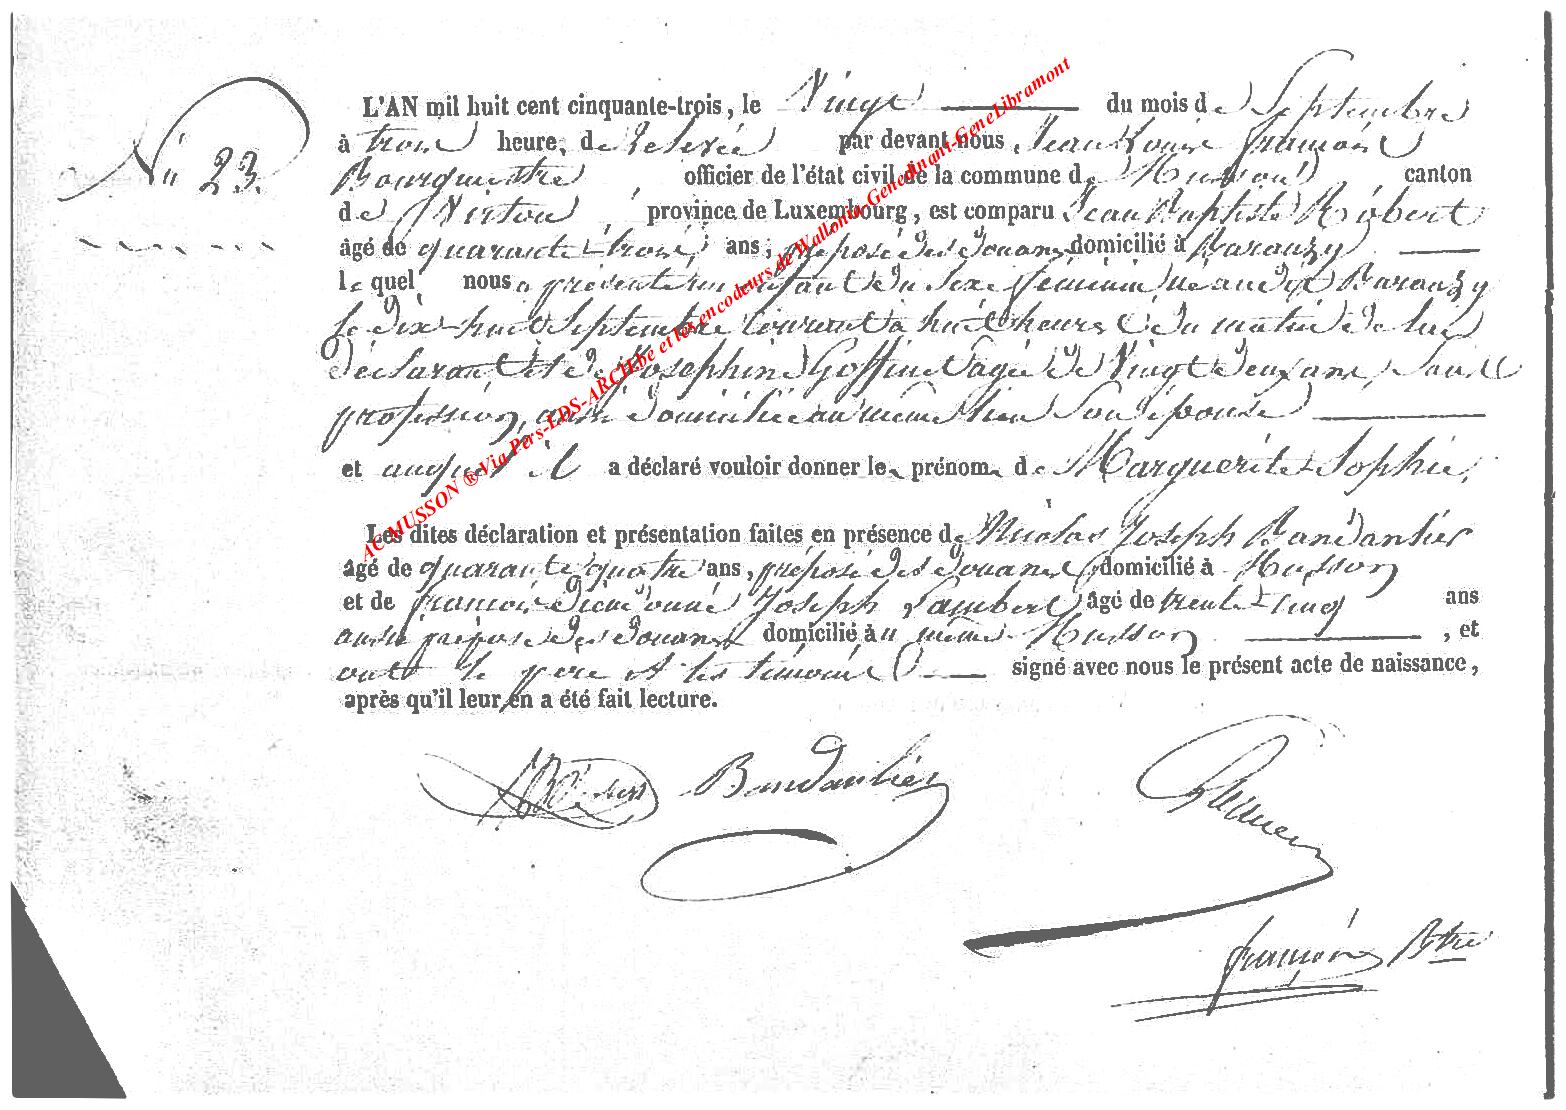 L'AN mil huit cent cinquante-trois, le Vingt du mois de Septembre
N° 23.
à trois heures de relevée par devant nous Jean Louis françois
Bourguestre officier de l'état civil de la commune de Musson canton
de Virton province de Luxembourg, est comparu Jean Baptiste Robert
âgé de quarante-trois ans, préposé des douanes domicilié à Baranzy
lequel nous a présenté un enfant du sexe féminin né au dit Baranzy
le dix-huit Septembre courant à huit heures du matin de lui
déclarant et de Josephine Goffinet agée de Vingt deux ans, sans
profession, aussi domiciliée au même lieu son épouse
et auquel il a déclaré vouloir donner les prénoms de Marguerite Sophie,
Les dites déclaration et présentation faites en présence de Nicolas Joseph Bandanlier
âgé de quarante quatre ans, préposé des douanes domicilié à Musson
et de françois dieudonné Joseph Lambert âgé de trente-cinq ans
aussi préposé des douanes domicilié au même Musson , et
ont le père et les témoins signé avec nous le présent acte de naissance,
après qu'il leur en a été fait lecture.
Bandanlier
françois Btre
AC MUSSON ® Via Pers-LDS-ARCH.be et les encodeurs de Wallonia-Genedinant-GeneLibramont